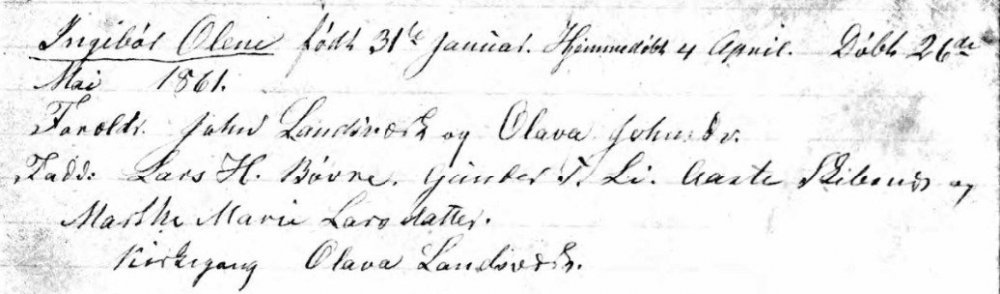 Ingibór Oleni født 31te Januar. Hjemmedøbt 4 April. Døbt 26de
Mai 1861.
Foreldr. John Landsverk og Olava Johnsdr.
Fadd: Lars H. Bøvre. Gunder T. Li. Aaste og
Marthe Marie Larsdatter.
Kirkegang Olava Landsverk.